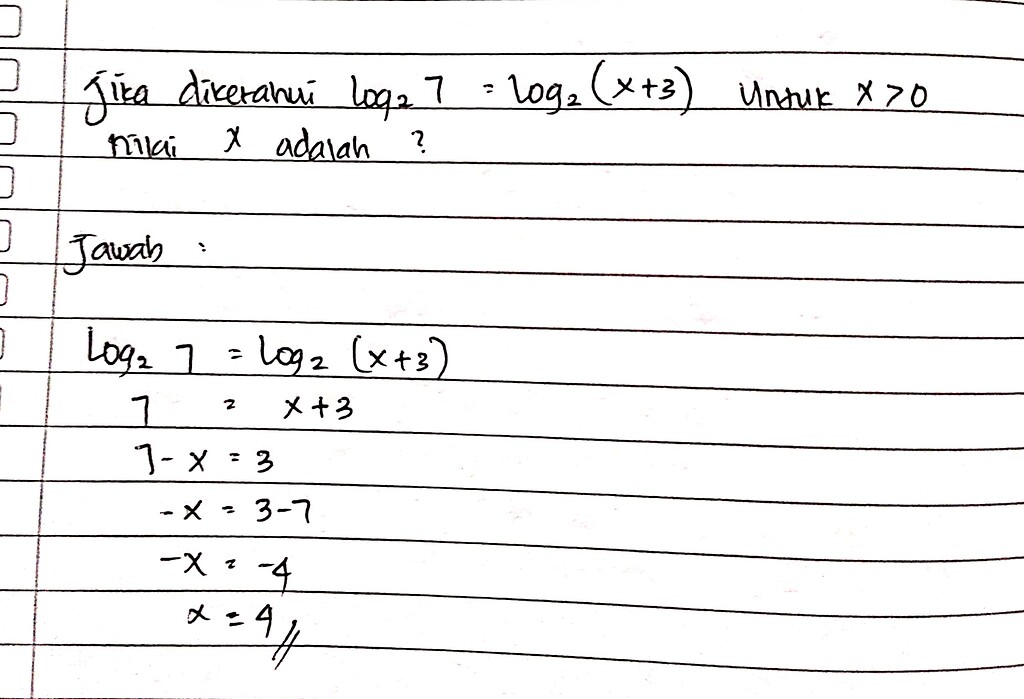 Jika diketahui log₂ 7 = log₂ (x+3) untuk x > 0
nilai x adalah ?
Jawab :
Log₂ 7 = log₂ (x+3)
7 = x+3
7 - x = 3
-x = 3-7
-x = -4
x = 4 //